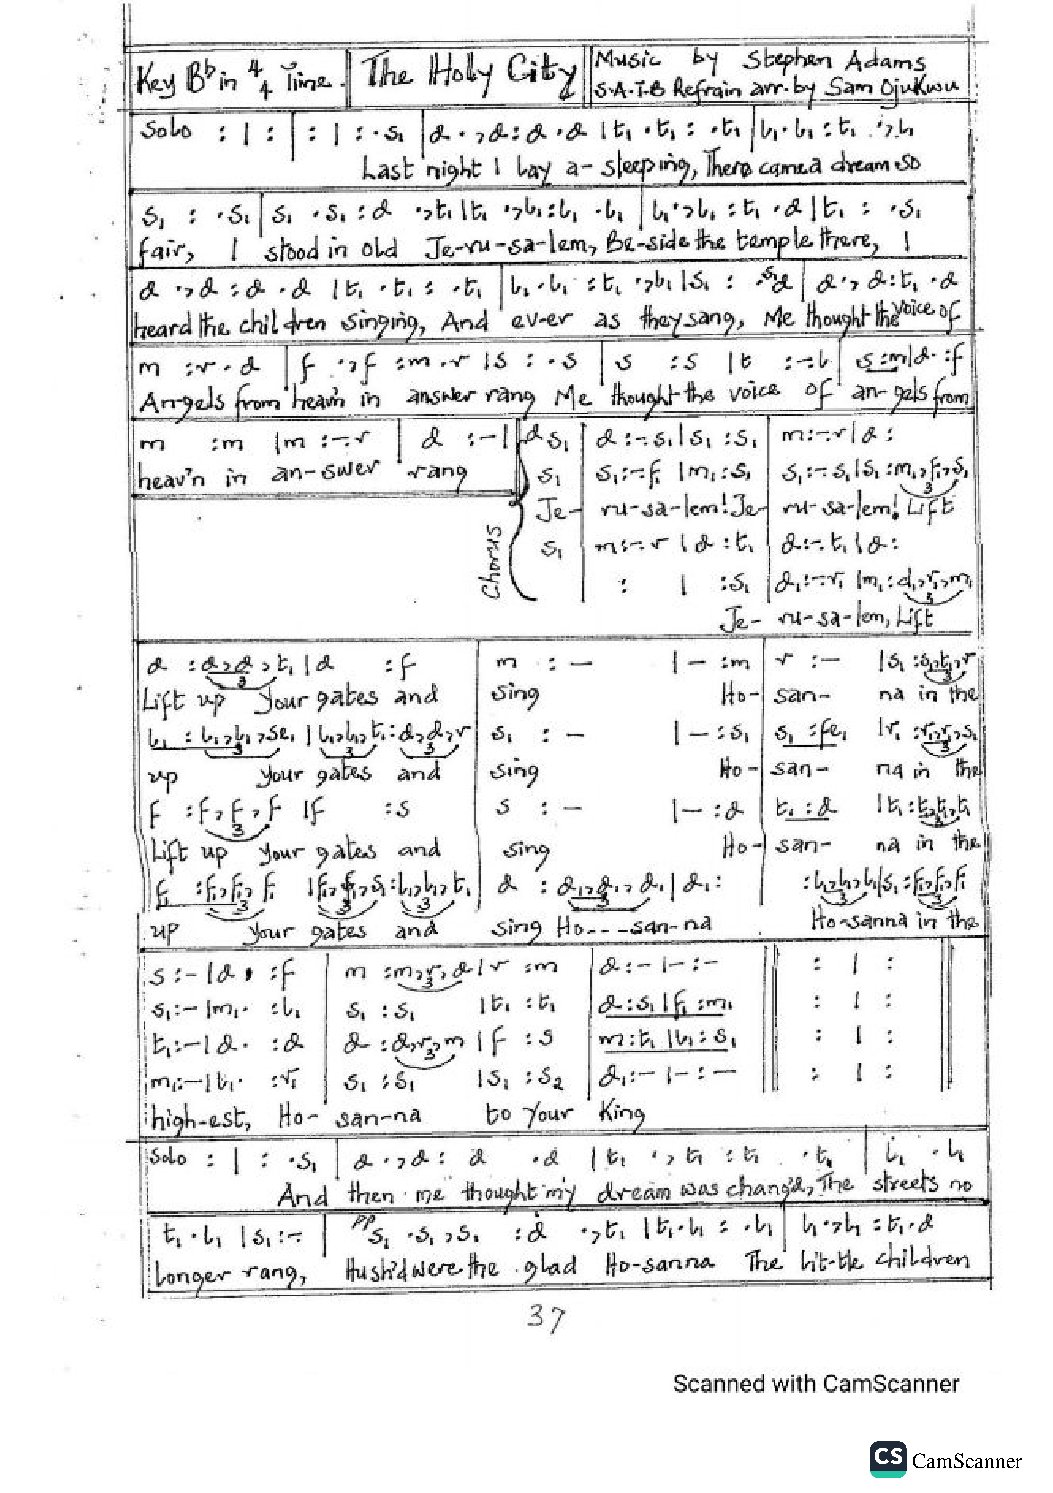 Key B♭ in 4/4 Time. The Holy City Music by Stephen Adams
S.A.T.B Refrain arr. by Sam Ojukwu
Solo : | : | : | : .s₁ | d . ,d : d . d | t₁ . t₁ : . t₁ | l₁ . l₁ : t₁ . ,l₁
Last night I lay a-sleeping, There came a dream so
s₁ : . s₁ | s₁ . s₁ : d . ,t₁ | t₁ . ,l₁ : l₁ . l₁ | l₁ . ,l₁ : t₁ . d | t₁ : . s₁
fair, I stood in old Je-ru-sa-lem, Be-side the temple there, I
d . ,d : d . d | t₁ . t₁ : . t₁ | l₁ . l₁ : t₁ . ,l₁ | s₁ : . s₁d | d . , d : t₁ . d
heard the children singing, And ev-er as they sang, Me thought the voice of
m : r . d | f . ,f : m . r | s : . s | s : s | t : - : l | s : m | d . : f
Angels from heav'n in answer rang Me thought the voice of an-gels from
m : m | m : - . r | d : - |
heav'n in an-swer rang
Chorus
d s₁ | d : - . s₁ | s₁ : s₁ | m : - . r | d :
s₁ | s₁ : - . f₁ | m₁ : s₁ | s₁ : - . s₁ | s₁ : m₁,f₁,s₁
Je- ru-sa-lem! Je- ru-sa-lem! Lift
s₁ | m : - . r | d : t₁ | d : - . t₁ | d :
: | : s₁ | d₁ : - . r₁ | m₁ : d₁,r₁,m₁
Je- ru-sa-lem, Lift
d : d,d,t₁ | d : f | m : - | - : m | r : - | s₁ : s₁,t₁,r
Lift up your gates and sing Ho- san- na in the
l₁ : l₁,l₁,se₁ | l₁,l₁,t₁ : d,d,r | s₁ : - | - : s₁ | s₁ : fe₁ | r₁ : r₁,r₁,s₁
up your gates and sing Ho- san- na in the
f : f,f,f | f : s | s : - | - : d | t₁ : d | t₁ : t₁,t₁,t₁
Lift up your gates and sing Ho- san- na in the
f₁ : f₁,f₁,f₁ | f₁,f₁,s₁ : l₁,l₁,t₁ | d : d₁,d₁,d₁ | d₁ : | : l₁,l₁,l₁ | s₁ : f₁,f₁,f₁
up your gates and sing Ho---san-na Ho-sanna in the
s : - | d . : f | m : m,r,d | r : m | d : - | - : - | : | :
s₁ : - | m₁ . : l₁ | s₁ : s₁ | t₁ : t₁ | d : s₁ | f₁ : m₁ | : | :
t₁ : - | d . : d | d : d,r,m | f : s | m : t₁ | l₁ : s₁ | : | :
m₁ : - | l₁ . : r₁ | s₁ : s₁ | s₁ : s₂ | d₁ : - | - : - | : | :
high-est, Ho- san-na to your King
Solo : | : . s₁ | d . ,d : d . d | t₁ . , t₁ : t₁ . t₁ | l₁ . l₁
And then me thought my dream was chang'd, The streets no
t₁ . l₁ | s₁ : - | pp s₁ . s₁ ,s₁ : d . ,t₁ | t₁ . l₁ : . l₁ | l₁ . ,l₁ : t₁ . d
Longer rang, Hush'd were the glad Ho-sanna The lit-tle children
37
Scanned with CamScanner
CS CamScanner